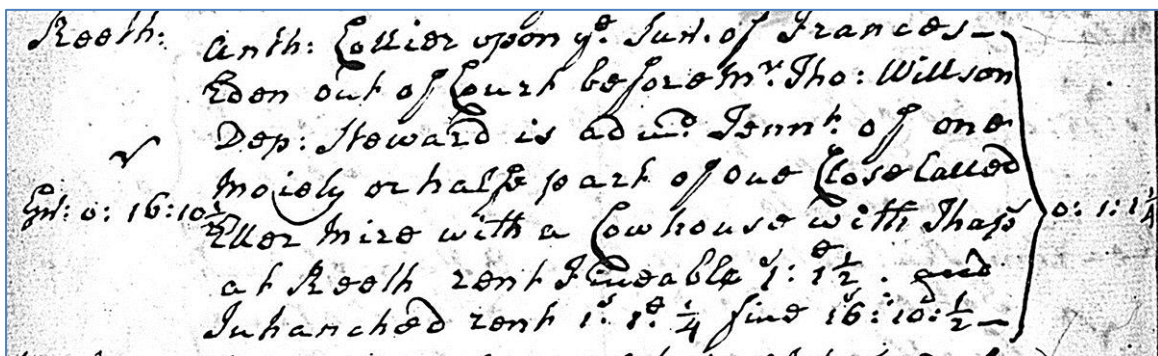 Reeth: Anth: Collier upon yᵉ Surr. of Frances
Eden out of Court before Mʳ. Tho: Willson
Dep: Steward is admᵈ. Tennᵗ. of one
Moiety or halfe part of one Close Called
Gˢˢ: 0: 16: 10½ Eller Mire with a Cowhouse with Thapˢ 0: 1: 1¼
at Reeth rent fineable 1ˢ: 1ᵈ½. and
Inhanched rent 1ˢ: 1ᵈ: ¼ fine 16ˢ: 10ᵈ: ½